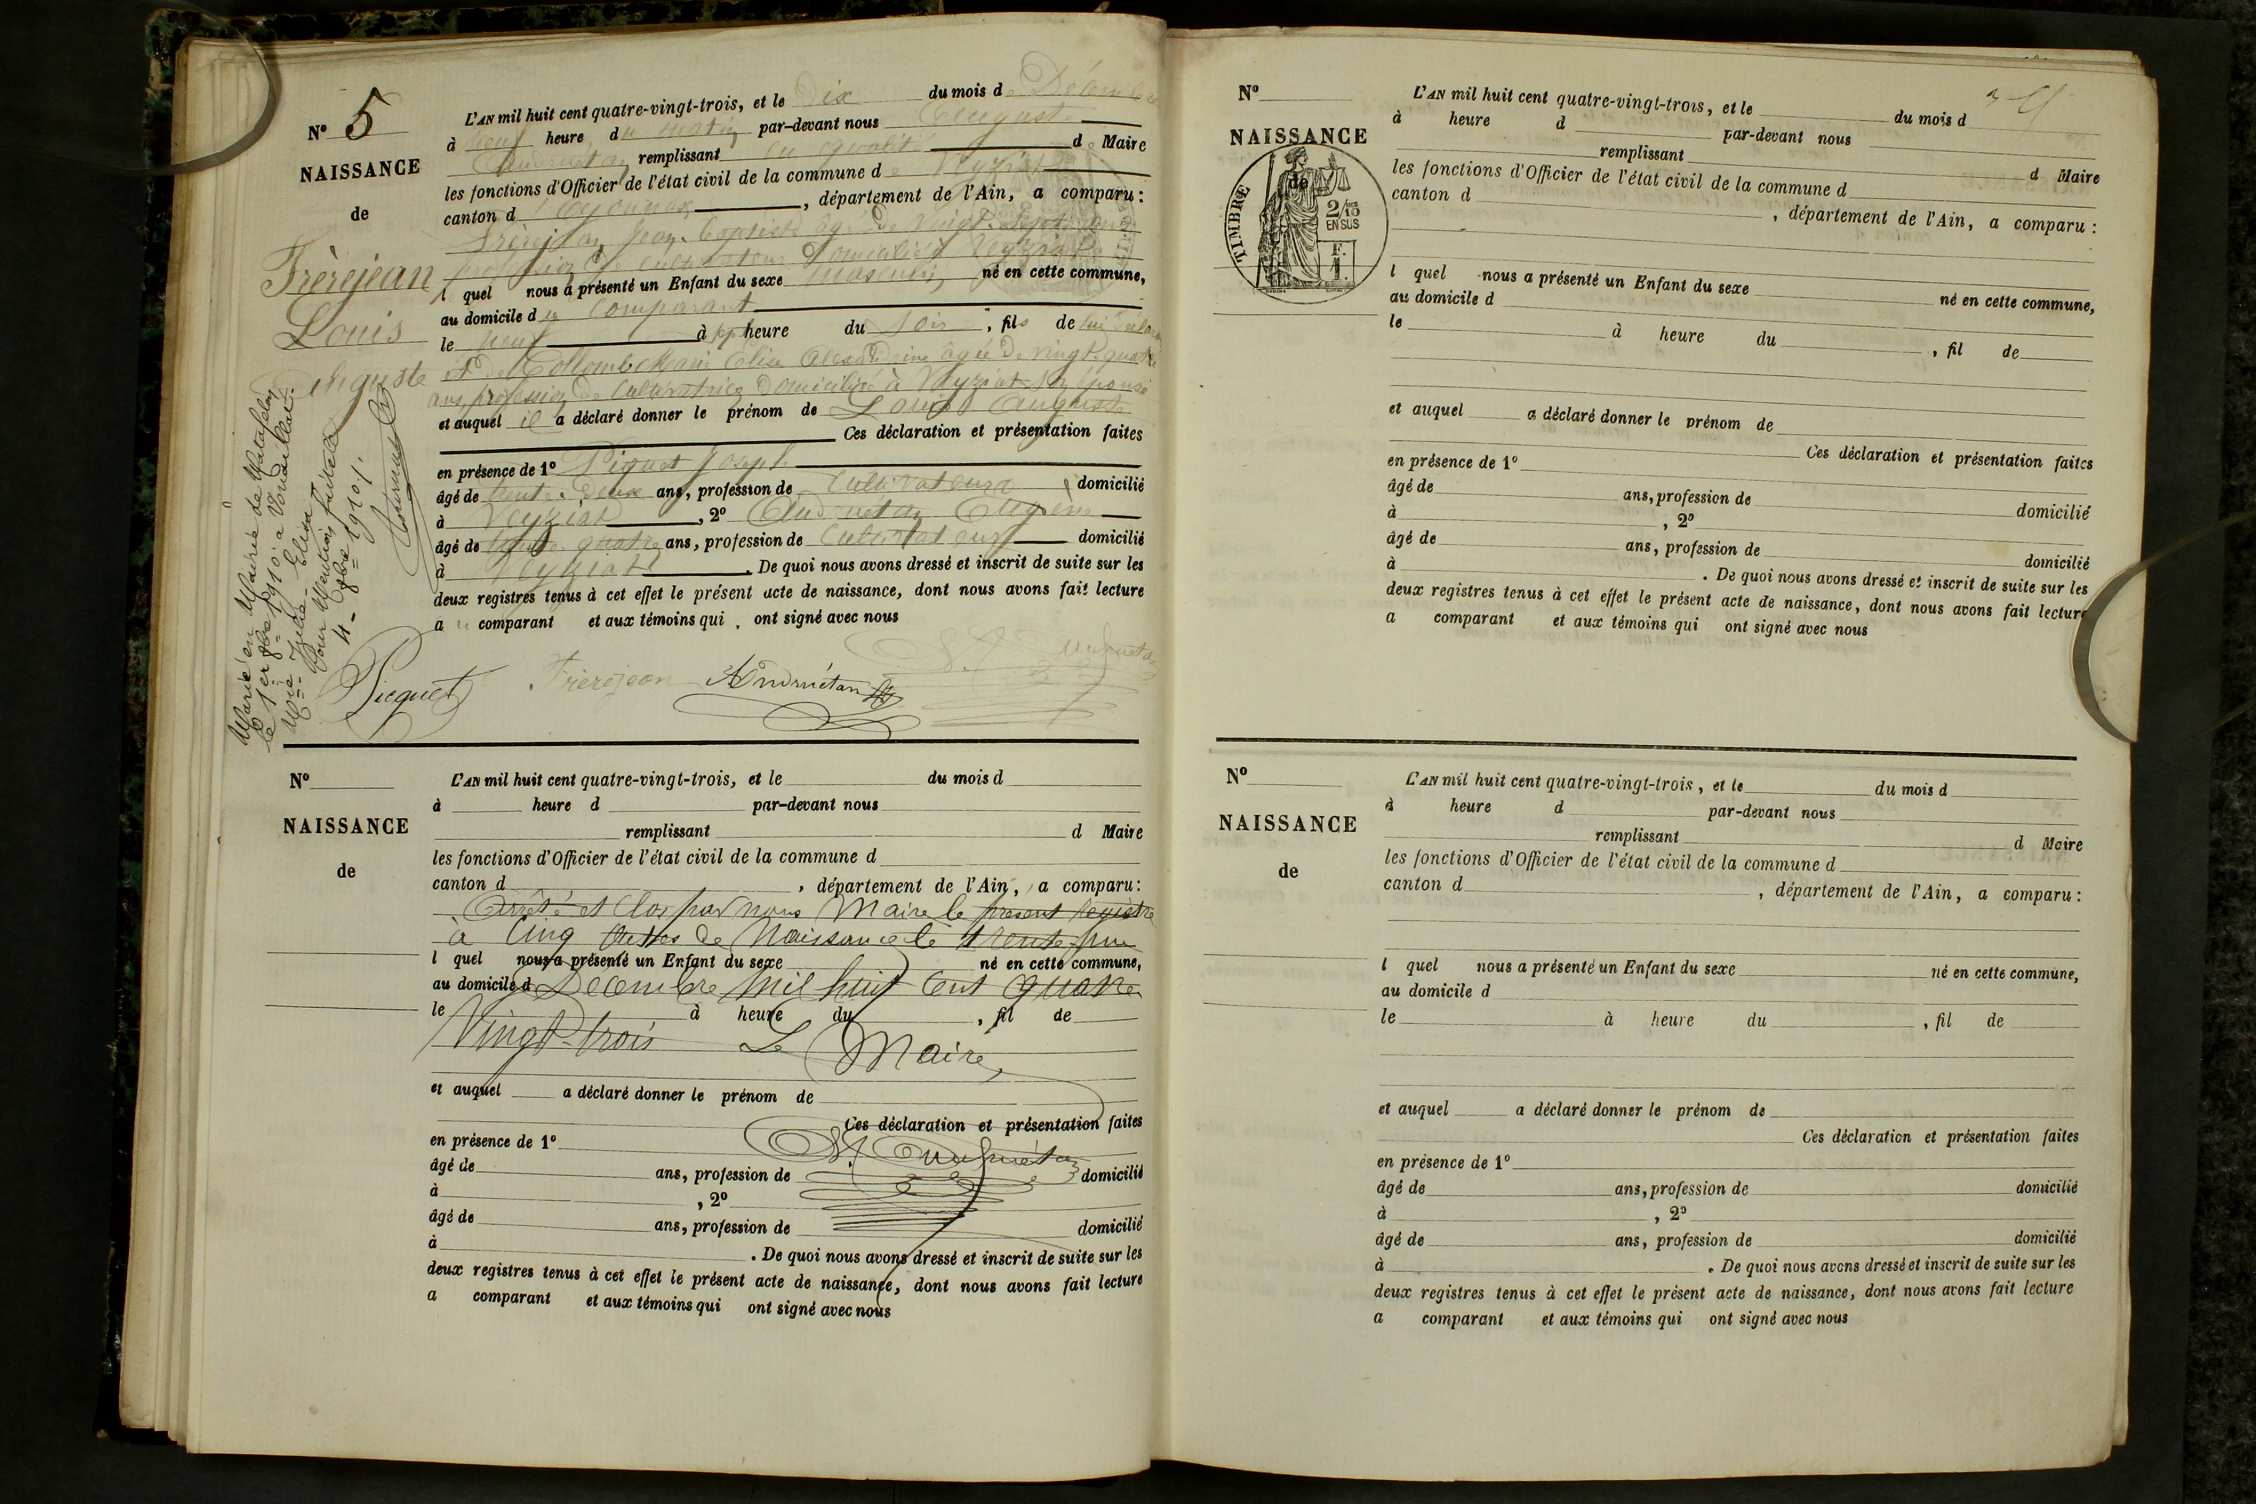 N° 5
NAISSANCE
de
Frèrejean
Louis
Auguste
L'AN mil huit cent quatre-vingt-trois, et le Dix du mois de Décembre
à neuf heure du matin par-devant nous Auguste
Andruétan remplissant en qualité de Maire
les fonctions d'Officier de l'état civil de la commune de Veyziat
canton d'Oyonnax, département de l'Ain, a comparu :
Frèrejean Jean-Baptiste agé de Vingt-Sept ans
profession de Cultivateur Domicilié à Veyziat
lequel nous a présenté un Enfant du sexe masculin né en cette commune,
au domicile du Comparant
le neuf à heure du soir, fils de lui Déclarant
et de Collomb Marie Elise Alexandrine âgée de vingt-quatre
ans profession de Cultivatrice Domiciliée à Veyziat son épouse
et auquel il a déclaré donner le prénom de Louis Auguste
Ces déclaration et présentation faites
en présence de 1° Piquet Joseph
âgé de trente-deux ans, profession de Cultivateur domicilié
à Veyziat, 2° Andruétan Eugène
âgé de trente-quatre ans, profession de Cultivateur domicilié
à Veyziat. De quoi nous avons dressé et inscrit de suite sur les
deux registres tenus à cet effet le présent acte de naissance, dont nous avons fait lecture
au comparant et aux témoins qui ont signé avec nous
Picquet Frèrejean Andruétan
Marié en Mairie de Matafelon
le 1er 9bre 1910 à Vondillat
Mie Zélie-Elisa
Pour Mention fidèle
4-9bre 1910
N°
NAISSANCE
de
L'AN mil huit cent quatre-vingt-trois, et le du mois d
à heure d par-devant nous
remplissant d Maire
les fonctions d'Officier de l'état civil de la commune d
canton d , département de l'Ain, a comparu :
Arrêté et Clos par nous Maire le présent registre
à Cinq Actes de Naissance le trente-un
l quel nous a présenté un Enfant du sexe né en cette commune,
au domicile d
Décembre Mil huit Cent Quatre
le à heure du , fil de
Vingt-trois Le Maire,
et auquel a déclaré donner le prénom de
Ces déclaration et présentation faites
en présence de 1°
Andruétan
âgé de ans, profession de domicilié
à , 2°
âgé de ans, profession de domicilié
à . De quoi nous avons dressé et inscrit de suite sur les
deux registres tenus à cet effet le présent acte de naissance, dont nous avons fait lecture
a comparant et aux témoins qui ont signé avec nous
N°
NAISSANCE
de
TIMBRE
2/10 EN SUS
F. 1.
L'AN mil huit cent quatre-vingt-trois, et le du mois d
à heure d par-devant nous
remplissant d Maire
les fonctions d'Officier de l'état civil de la commune d
canton d , département de l'Ain, a comparu :
l quel nous a présenté un Enfant du sexe né en cette commune,
au domicile d
le à heure du , fil de
et auquel a déclaré donner le prénom de
Ces déclaration et présentation faites
en présence de 1°
âgé de ans, profession de domicilié
à , 2°
âgé de ans, profession de domicilié
à . De quoi nous avons dressé et inscrit de suite sur les
deux registres tenus à cet effet le présent acte de naissance, dont nous avons fait lecture
a comparant et aux témoins qui ont signé avec nous
N°
NAISSANCE
de
L'AN mil huit cent quatre-vingt-trois, et le du mois d
à heure d par-devant nous
remplissant d Maire
les fonctions d'Officier de l'état civil de la commune d
canton d , département de l'Ain, a comparu :
l quel nous a présenté un Enfant du sexe né en cette commune,
au domicile d
le à heure du , fil de
et auquel a déclaré donner le prénom de
Ces déclaration et présentation faites
en présence de 1°
âgé de ans, profession de domicilié
à , 2°
âgé de ans, profession de domicilié
à . De quoi nous avons dressé et inscrit de suite sur les
deux registres tenus à cet effet le présent acte de naissance, dont nous avons fait lecture
a comparant et aux témoins qui ont signé avec nous